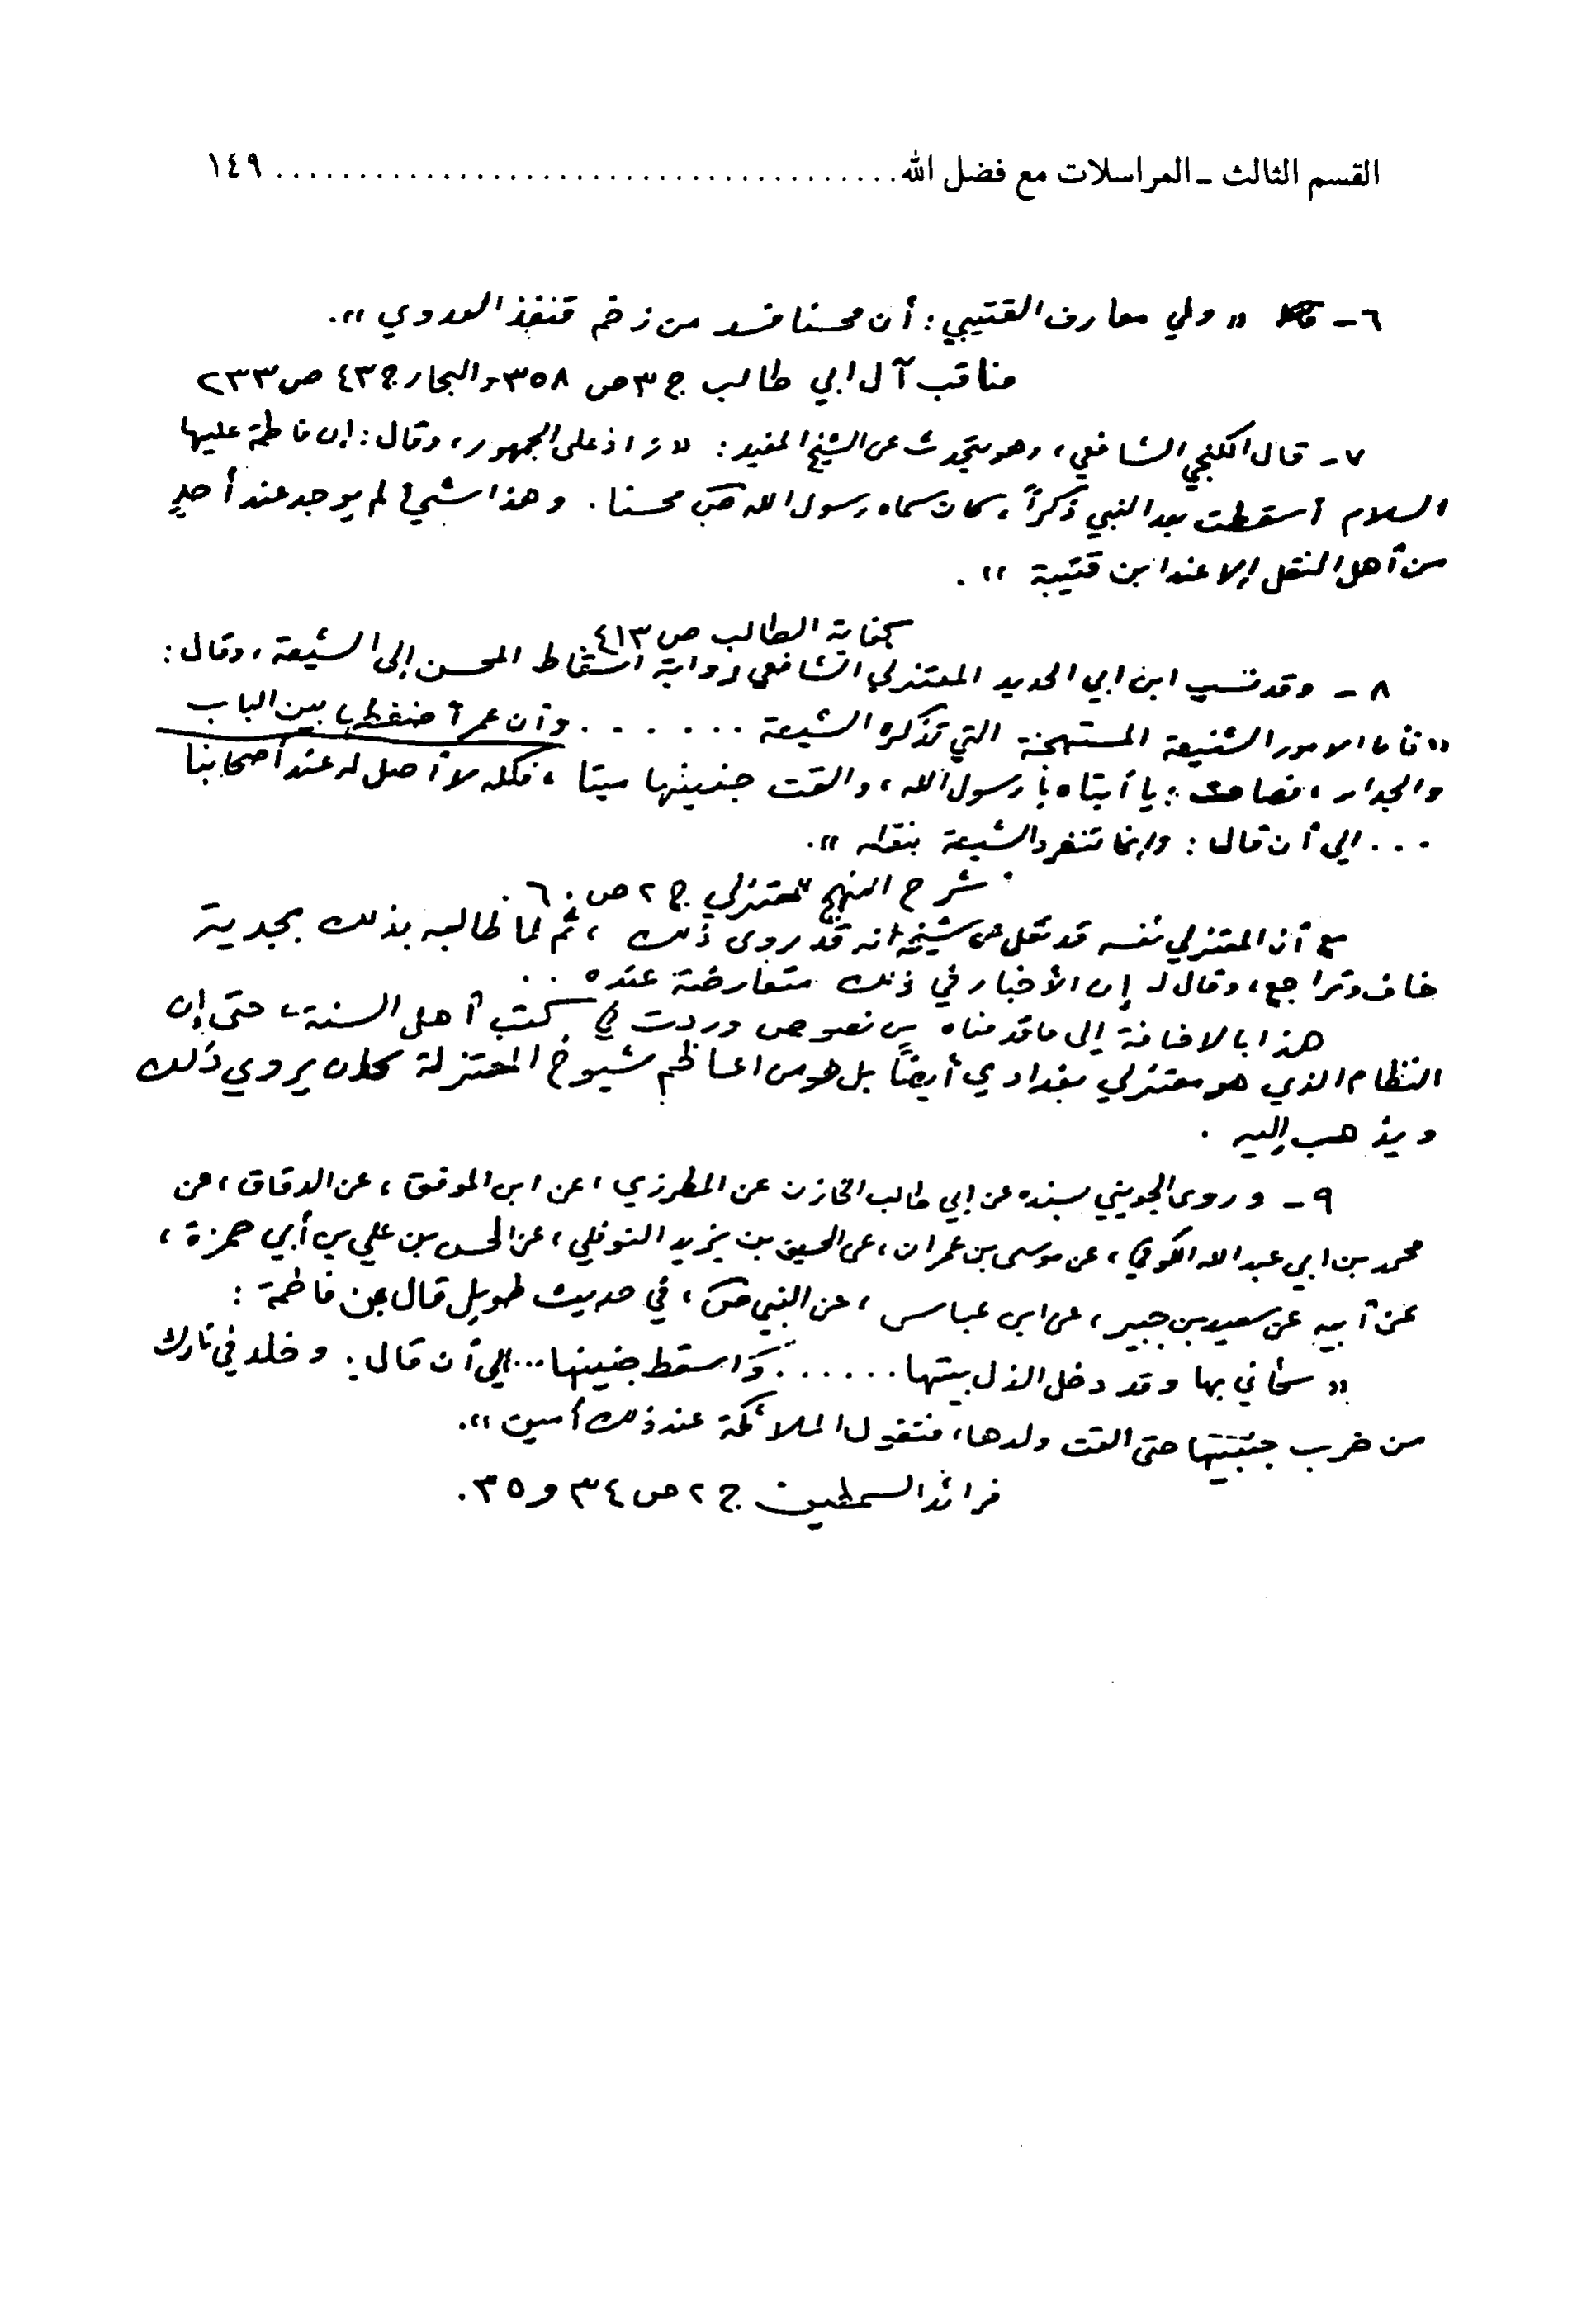 القسم الثالث ـ المراسلات مع فضل الله ..................................... ١٤٩
٦ ـ « وفي معارف القتيبي : أن محسنا فسد من زخم قنفذ العدوي » .
مناقب آل ابي طالب ج ٣ ص ٣٥٨ والبحار ج ٤٣ ص ٢٣٣
٧ ـ قال الكنجي الشافعي ، وهو يتحدث عن الشيخ المفيد : « زاد على الجمهور ، وقال : إن فاطمة عليها
السلام أسقطت بعد النبي ذكراً ، كان سماه رسول الله ص محسنا . وهذا شيئ لم يوجد عند أحدٍ
من أهل النقل إلا عند ابن قتيبة » .
كفاية الطالب ص ٤١٣
٨ ـ وقد نسب ابن ابي الحديد المعتزلي الشافعي رواية اسقاط المحسن إلى الشيعة ، وقال :
« فأما الامور الشنيعة المستهجنة التي تذكره الشيعة . . . . . . وأن عمر أضغطها بين الباب
والجدار ، فصاحت : يا أبتاه يا رسول الله ، والقت جنينها ميتا ، فكله لا أصل له عند أصحابنا
. . . الى أن قال : وانما تنفرد الشيعة بنقله » .
شرح النهج للمعتزلي ج ٢ ص ٦٠ .
مع أن المعتزلي نفسه قد نقل عن شيخه انه قد روى ذلك ، ثم لما طالبه بذلك بجدية
خاف وتراجع ، وقال له إن الأخبار في ذلك متعارضة عنده . .
هذا بالاضافة إلى ما قدمناه من نصوص وردت في كتب أهل السنة ، حتى إن
النظام الذي هو معتزلي بغدادي أيضاً بل هو من اعاظم شيوخ المعتزلة كان يروي ذلك
ويذهب إليه .
٩ ـ وروى الجويني بسنده عن ابي طالب الخازن عن المطرزي ، عن ابن الموفق ، عن الدقاق ، عن
محمد بن ابي عبد الله الكوفي ، عن موسى بن عمران ، عن الحسين بن يزيد النوفلي ، عن الحسن بن علي بن أبي حمزة ،
عن أبيه عن سعيد بن جبير ، عن ابن عباس ، عن النبي ص ، في حديث طويل قال عن فاطمة :
« كأني بها وقد دخل الذل بيتها . . . . . . . وأسقط جنينها ... الى أن قال : وخلد في نارك
من ضرب جنبيها حتى القت ولدها ، فتقول الملائكة عند ذلك أمين » .
فرائد السمطين ج ٢ ص ٣٤ و ٣٥ .